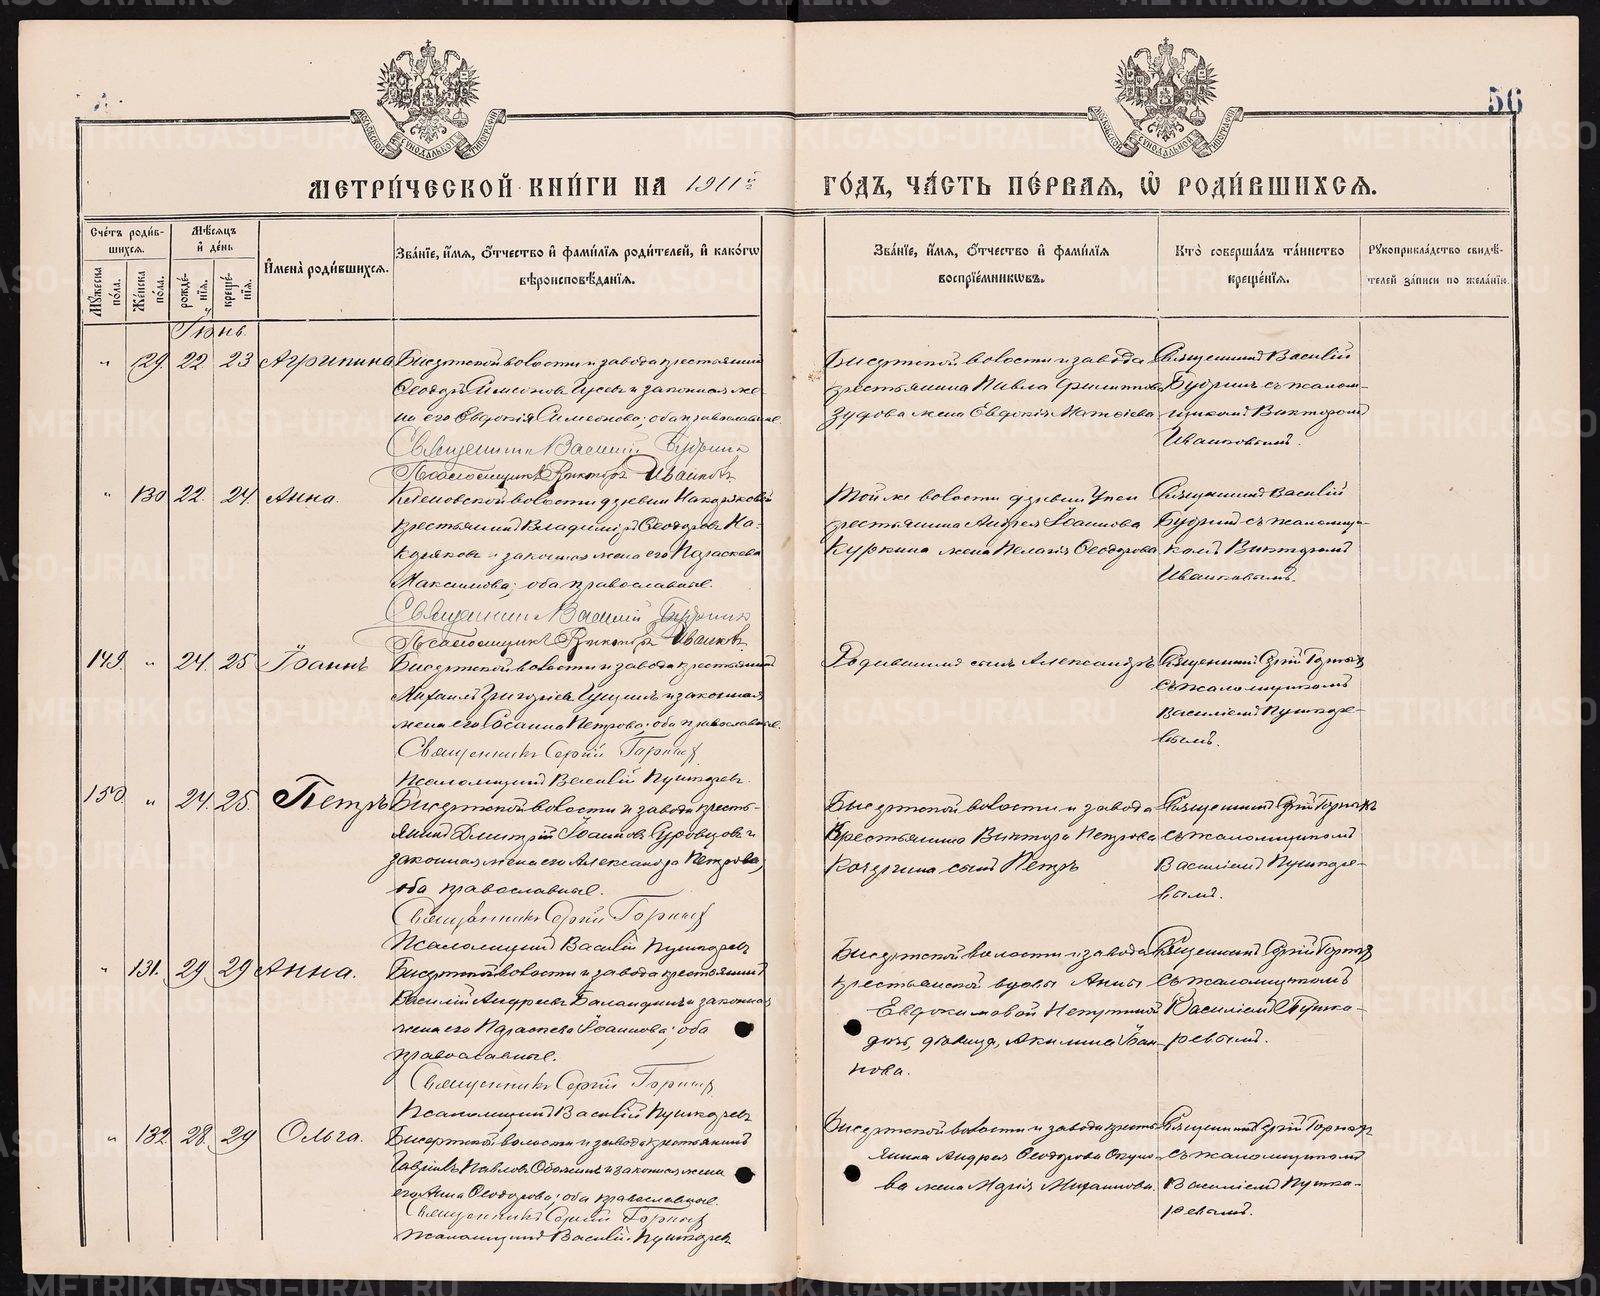 56
МЕТРИ́ЧЕСКОЙ КНИ́ГИ НА 1911й
ГО́ДЪ, ЧА́СТЬ ПЕ́РВАѦ, Ѡ҆ РОДИ́ВШИХСѦ.
Сче́тъ роди́в-
шихсѧ.
Мꙋ́жеска по́ла.
Же́нска по́ла.
Мѣ́сѧцъ
и҆ де́нь
рожде́-
нїѧ.
креще́-
нїѧ.
И҆мена̀ роди́вшихсѧ.
Зва́нїе, и҆́мѧ, ѻ҆́тчество и҆ фами́лїѧ роди́телей, и҆ како́гѡ
вѣроисповѣ́данїѧ.
Зва́нїе, и҆́мѧ, ѻ҆́тчество и҆ фами́лїѧ
воспрїе́мникѡвъ.
Кто̀ соверша́лъ та́инство
креще́нїѧ.
Рꙋкоприкла́дство свидѣ́-
телей за́писи по жела́нїю.
Іюнь.
" 129. 22 23 Агрипина
Бисертской волости и завода крестьянинъ
Ѳеодоръ Симеоновъ Гусевъ и законная же-
на его Евдокія Симеонова; оба православные.
Священникъ Василій Будринъ
Псаломщикъ Викторъ Иваковъ
Бисертской волости и завода
крестьянина Павла Филиппова
Зудова жена Евдокія Матѳіева
Священникъ Василій
Будринъ съ псалом-
щикомъ Викторомъ
" 130 22. 24. Анна.
волости деревни Накаряковой
крестьянинъ Владиміръ Ѳеодоровъ На-
каряковъ и законная жена его Параскева
Максимова; оба православные.
Священникъ Василій Будринъ
Псаломщикъ Викторъ Иваковъ
Той же волости деревни
крестьянина Андрея Іоаннова
Куркина жена Пелагія Ѳеодорова
Священникъ Василій
Будринъ съ псаломщи-
комъ Викторомъ
149. " 24. 25 Іоаннъ
Бисертской волости и завода крестьянинъ
Михаилъ Григоріевъ и законная
жена его Сосанна Петрова; оба православные.
Священникъ Сергій Горныхъ
Псаломщикъ Василій Пушкаревъ.
Родившаго сынъ Александръ
Священникъ Сергій Горныхъ
съ псаломщикомъ
Василіемъ Пушкаре-
вымъ.
150. " 24. 25. Петръ
Бисертской волости и завода кресть-
янинъ Димитрій Іоанновъ Суровцовъ и
законная жена его Александра Петрова;
оба православные.
Священникъ Сергій Горныхъ
Псаломщикъ Василій Пушкаревъ
Бисертской волости и завода
крестьянина Виктора Петрова
сынъ Петръ
Священникъ Сергій Горныхъ
съ псаломщикомъ
Василіемъ Пушкаре-
вымъ.
" 131. 29 29 Анна.
Бисертской волости и завода крестьянинъ
Василій Андреевъ Баландинъ и законная
жена его Параскева Іоаннова; оба
православные.
Священникъ Сергій Горныхъ
Псаломщикъ Василій Пушкаревъ
Бисертской волости и завода
крестьянской вдовы Анны
Евдокимовой
дочь, дѣвица, Акилина Іоан-
нова.
Священникъ Сергій Горныхъ
съ псаломщикомъ
Василіемъ Пушка-
ревымъ.
" 132. 28. 29 Ольга.
Бисертской волости и завода крестьянинъ
Гавріилъ Павловъ и законная жена
его Анна Ѳеодорова; оба православные.
Священникъ Сергій Горныхъ
Псаломщикъ Василій Пушкаревъ
Бисертской волости и завода кресть-
янина Андрея Ѳеодорова Окуло-
ва жена Марія Михаилова.
Священникъ Сергій Горныхъ
съ псаломщикомъ
Василіемъ Пушка-
ревымъ.
METRIKI.GASO-URAL.RU